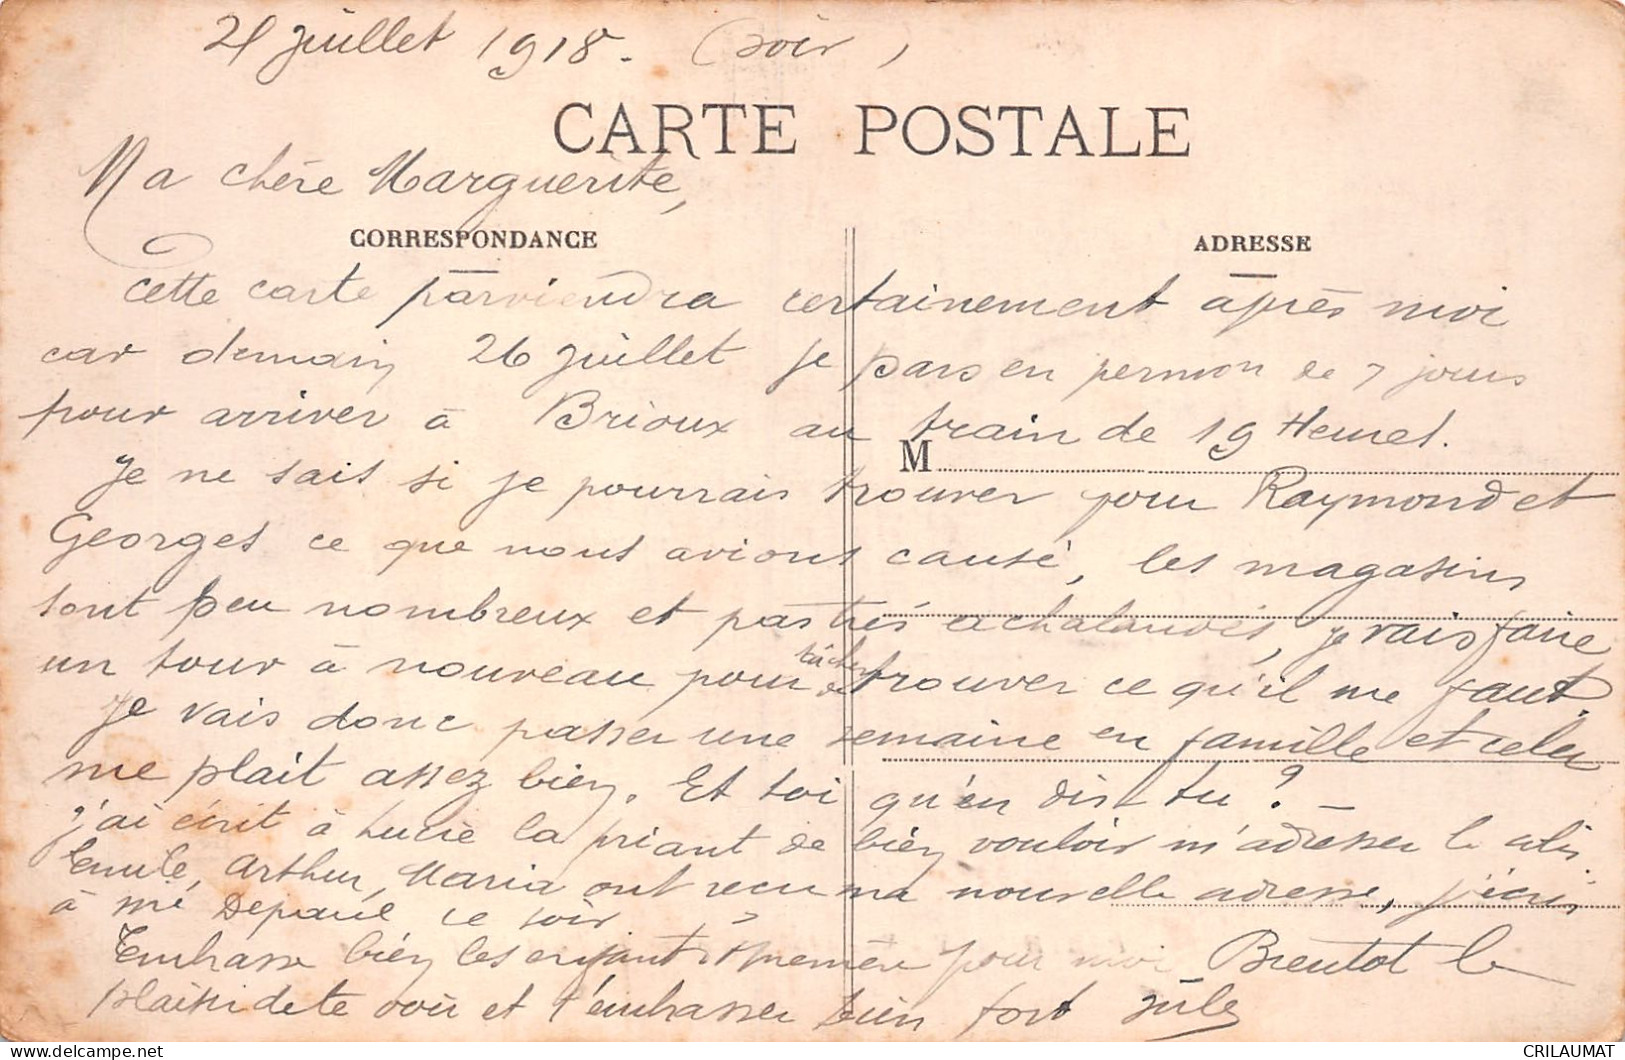 21 juillet 1918. (soir)
CARTE POSTALE
Ma chère Marguerite,
CORRESPONDANCE
ADRESSE
cette carte parviendra certainement après moi
car demain 26 juillet je pars en permion de 7 jours
pour arriver à Brioux au train de 19 Heures.
M
Je ne sais si je pourrais trouver pour Raymond et
Georges ce que nous avions causé, les magasins
sont peu nombreux et pas très achalandés, je vais faire
un tour à nouveau pour tâcher de trouver ce qu'il me faut.
Je vais donc passer une semaine en famille et cela
me plait assez bien. Et toi qu'en dis tu ? -
j'ai écrit à Lucie la priant de bien vouloir m'adresser le colis
Emile, Arthur, Maria ont recu ma nouvelle adresse, j'écris
à Depaul ce soir
Embrasse bien les enfants pour moi Bientot le
plaisir de te voir et t'embrasser bien fort Jules
CRILAUMAT